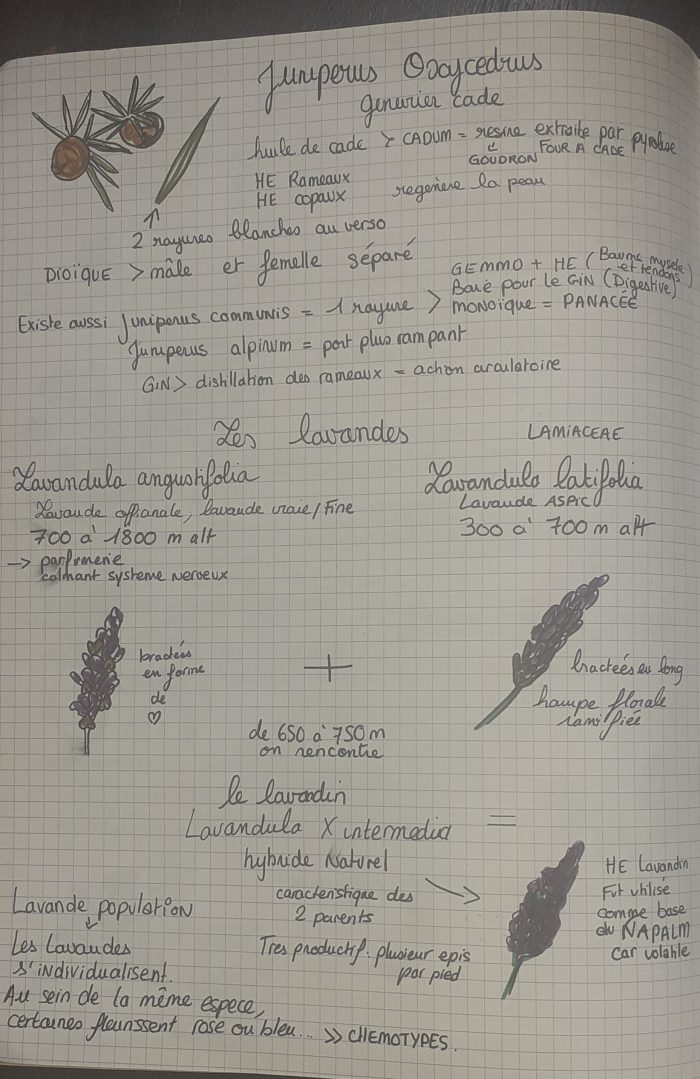 Juniperus Oxycedrus
genévrier cade
huile de cade > CADUM = resine extraite par pyrolise
GOUDRON FOUR A CADE
HE Rameaux
HE copaux regenère la peau
2 rayures blanches au verso
DIOÏQUE > mâle et femelle séparé
GEMMO + HE (Baume muscle et tendons)
Baie pour le GIN (Digestive)
Existe aussi Juniperus communis = 1 rayure > MONOÏQUE = PANACÉE
Juniperus alpinum = port plus rampant
GIN > distillation des rameaux = action circulatoire
Les lavandes LAMIACEAE
Lavandula angustifolia
Lavandula latifolia
Lavande officinale, lavande vraie/Fine
Lavande ASPIC
700 à 1800 m alt
300 à 700 m alt
→ parfumerie
calmant systeme nerveux
bractées
en forme
de
♡
+
bractées en long
hampe florale
ramifiée
de 650 à 750 m
on rencontre
le lavandin
Lavandula X intermedia =
hybride Naturel
caracteristique des
2 parents
Tres productif. plusieur epis
par pied
HE Lavandin
Fut utilisé
comme base
du NAPALM
car volatile
Lavande population
Les Lavandes
s'individualisent.
Au sein de la même espece,
certaines fleurissent rose ou bleu... >> CHEMOTYPES.